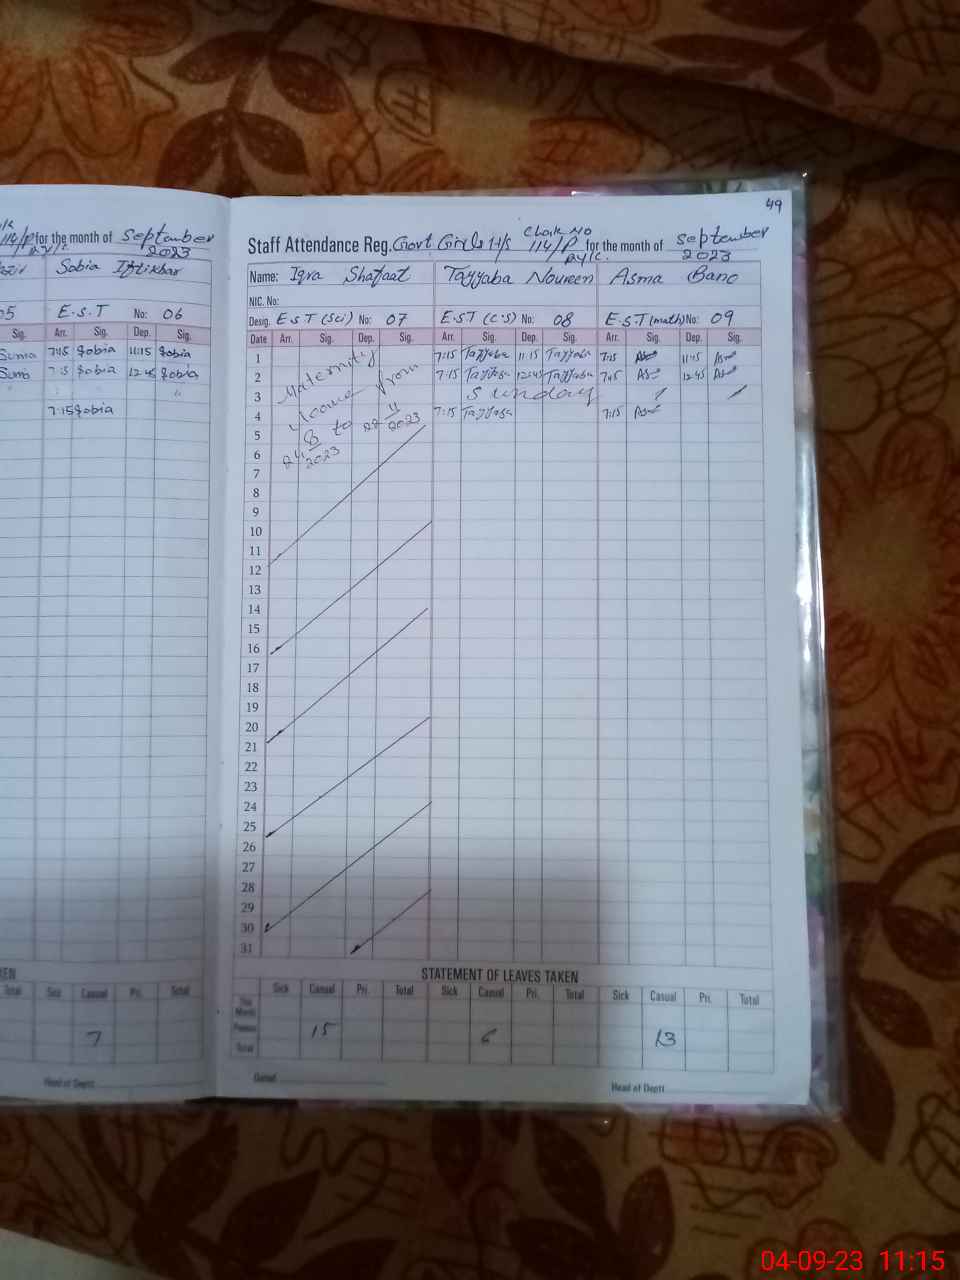 49
114/P for the month of September
2023
Sobia Iftikhar
05 E.S.T No: 06
Sig. Arr. Sig. Dep. Sig.
Suma 7:45 Sobia 11:15 Sobia
Suma 7:15 Sobia 12:45 Sobia
7:15 Sobia
Total Sick Casual Pri. Total
7
Head of Deptt
Chak No
Staff Attendance Reg. Govt Girls H/S 114/P for the month of September
R.Y.K. 2023
Name: Iqra Shafaat Tayyaba Noureen Asma Bano
NIC. No:
Desig. E.S.T (Sci) No: 07 E.S.T (C.S) No: 08 E.S.T (math) No: 09
Date Arr. Sig. Dep. Sig. Arr. Sig. Dep. Sig. Arr. Sig. Dep. Sig.
1 7:15 Tayyaba 11:15 Tayyaba 7:15 11:15
2 7:15 Tayyaba 12:45 Tayyaba 7:45 12:45
3 Sunday
4 7:15 Tayyaba 7:15
Maternity
leave from
24 8 2023 to 22 11 2023
5
6
7
8
9
10
11
12
13
14
15
16
17
18
19
20
21
22
23
24
25
26
27
28
29
30
31
STATEMENT OF LEAVES TAKEN
Sick Casual Pri. Total Sick Casual Pri. Total Sick Casual Pri. Total
This Month
Previous 15 6 13
Total
Dated
Head of Deptt
04-09-23 11:15